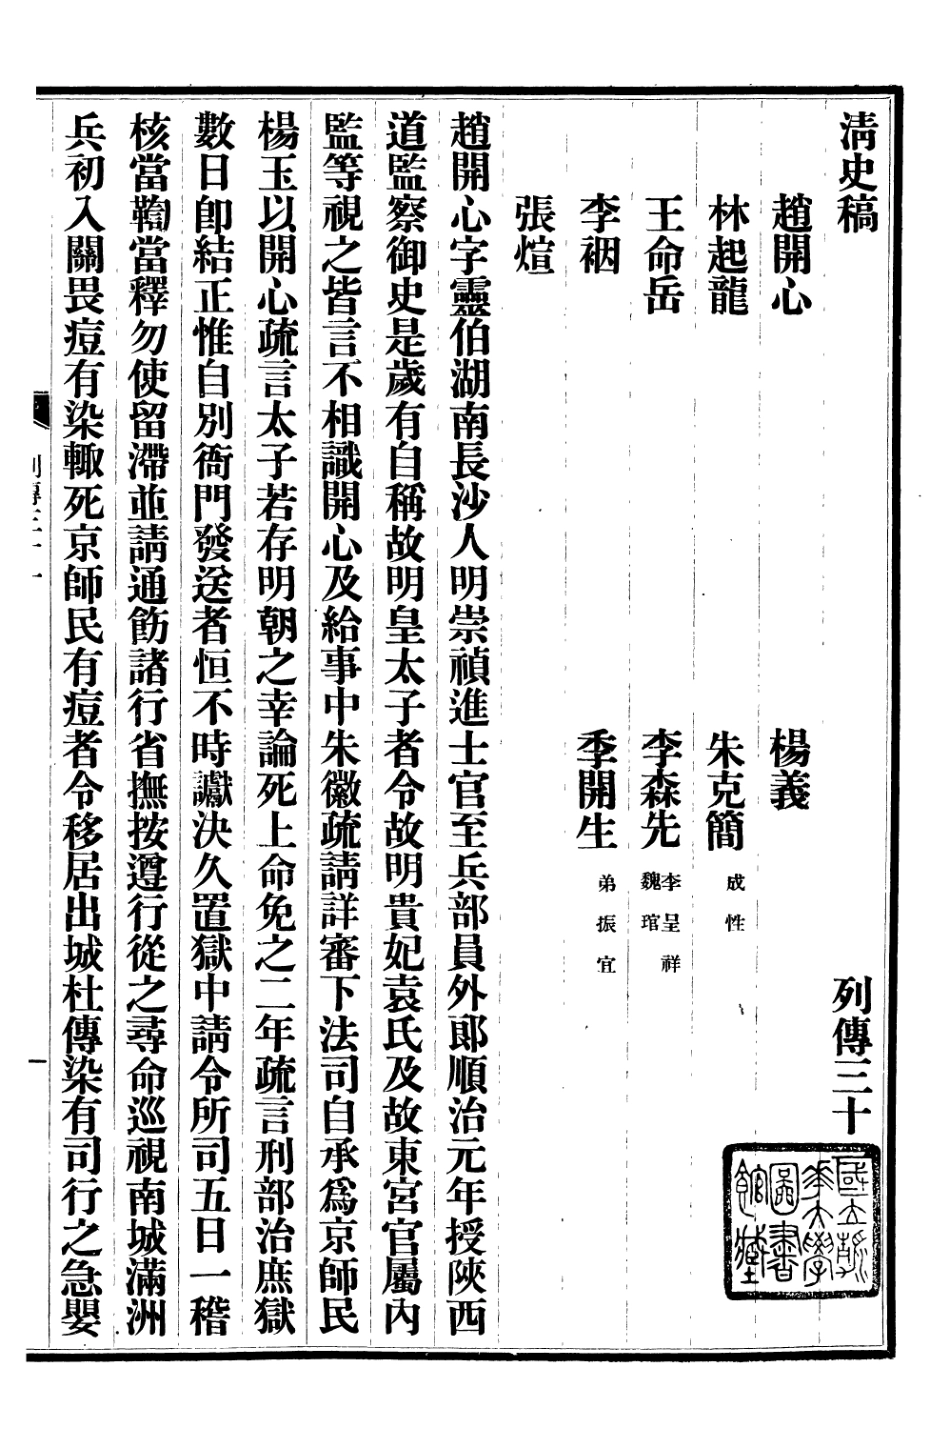 清史稿 列傳三十
趙開心 楊義
林起龍 朱克簡 成性
王命岳 李森先 李呈祥 魏琯
李裀 季開生 弟振宜
張煊
趙開心字靈伯湖南長沙人明崇禎進士官至兵部員外郎順治元年授陝西
道監察御史是歲有自稱故明皇太子者令故明貴妃袁氏及故東宮官屬內
監等視之皆言不相識開心及給事中朱徽疏請詳審下法司自承爲京師民
楊玉以開心疏言太子若存明朝之幸論死上命免之二年疏言刑部治庶獄
數日卽結正惟自別衙門發送者恒不時讞決久置獄中請令所司五日一稽
核當鞫當釋勿使留滯並請通飭諸行省撫按遵行從之尋命巡視南城滿洲
兵初入關畏痘有染輒死京師民有痘者令移居出城杜傳染有司行之急嬰
國立清華大學圖書館藏
一